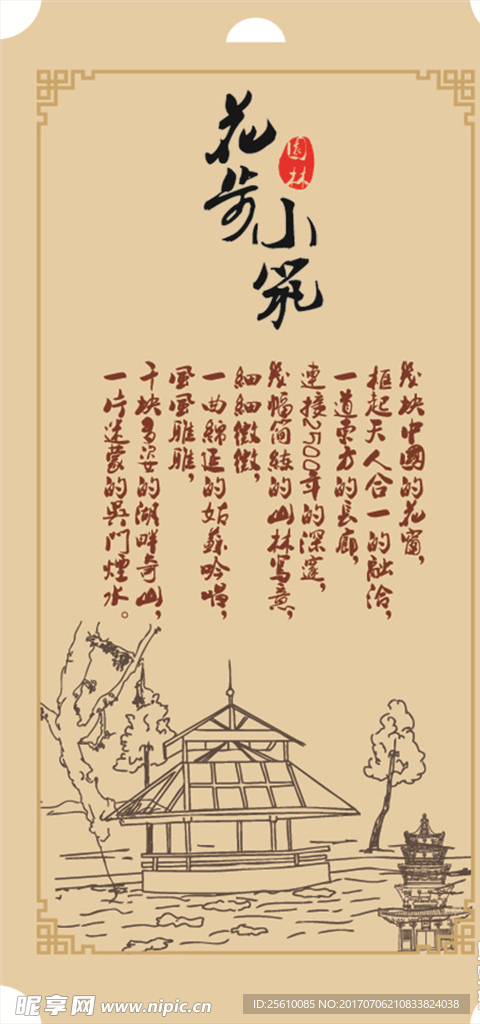 花步小筑
园林
几块中國的花窗，
框起天人合一的融洽，
一道东方的長廊，
連接2500年的深邃，
几幅简练的山林写意，
細細微微，
一曲綿延的姑蘇吟唱，
風風雅雅，
千块多姿的湖畔奇山，
一片迷蒙的吳門煙水。
昵享网 www.nipic.cn
ID:25610085 NO:20170706210833824038